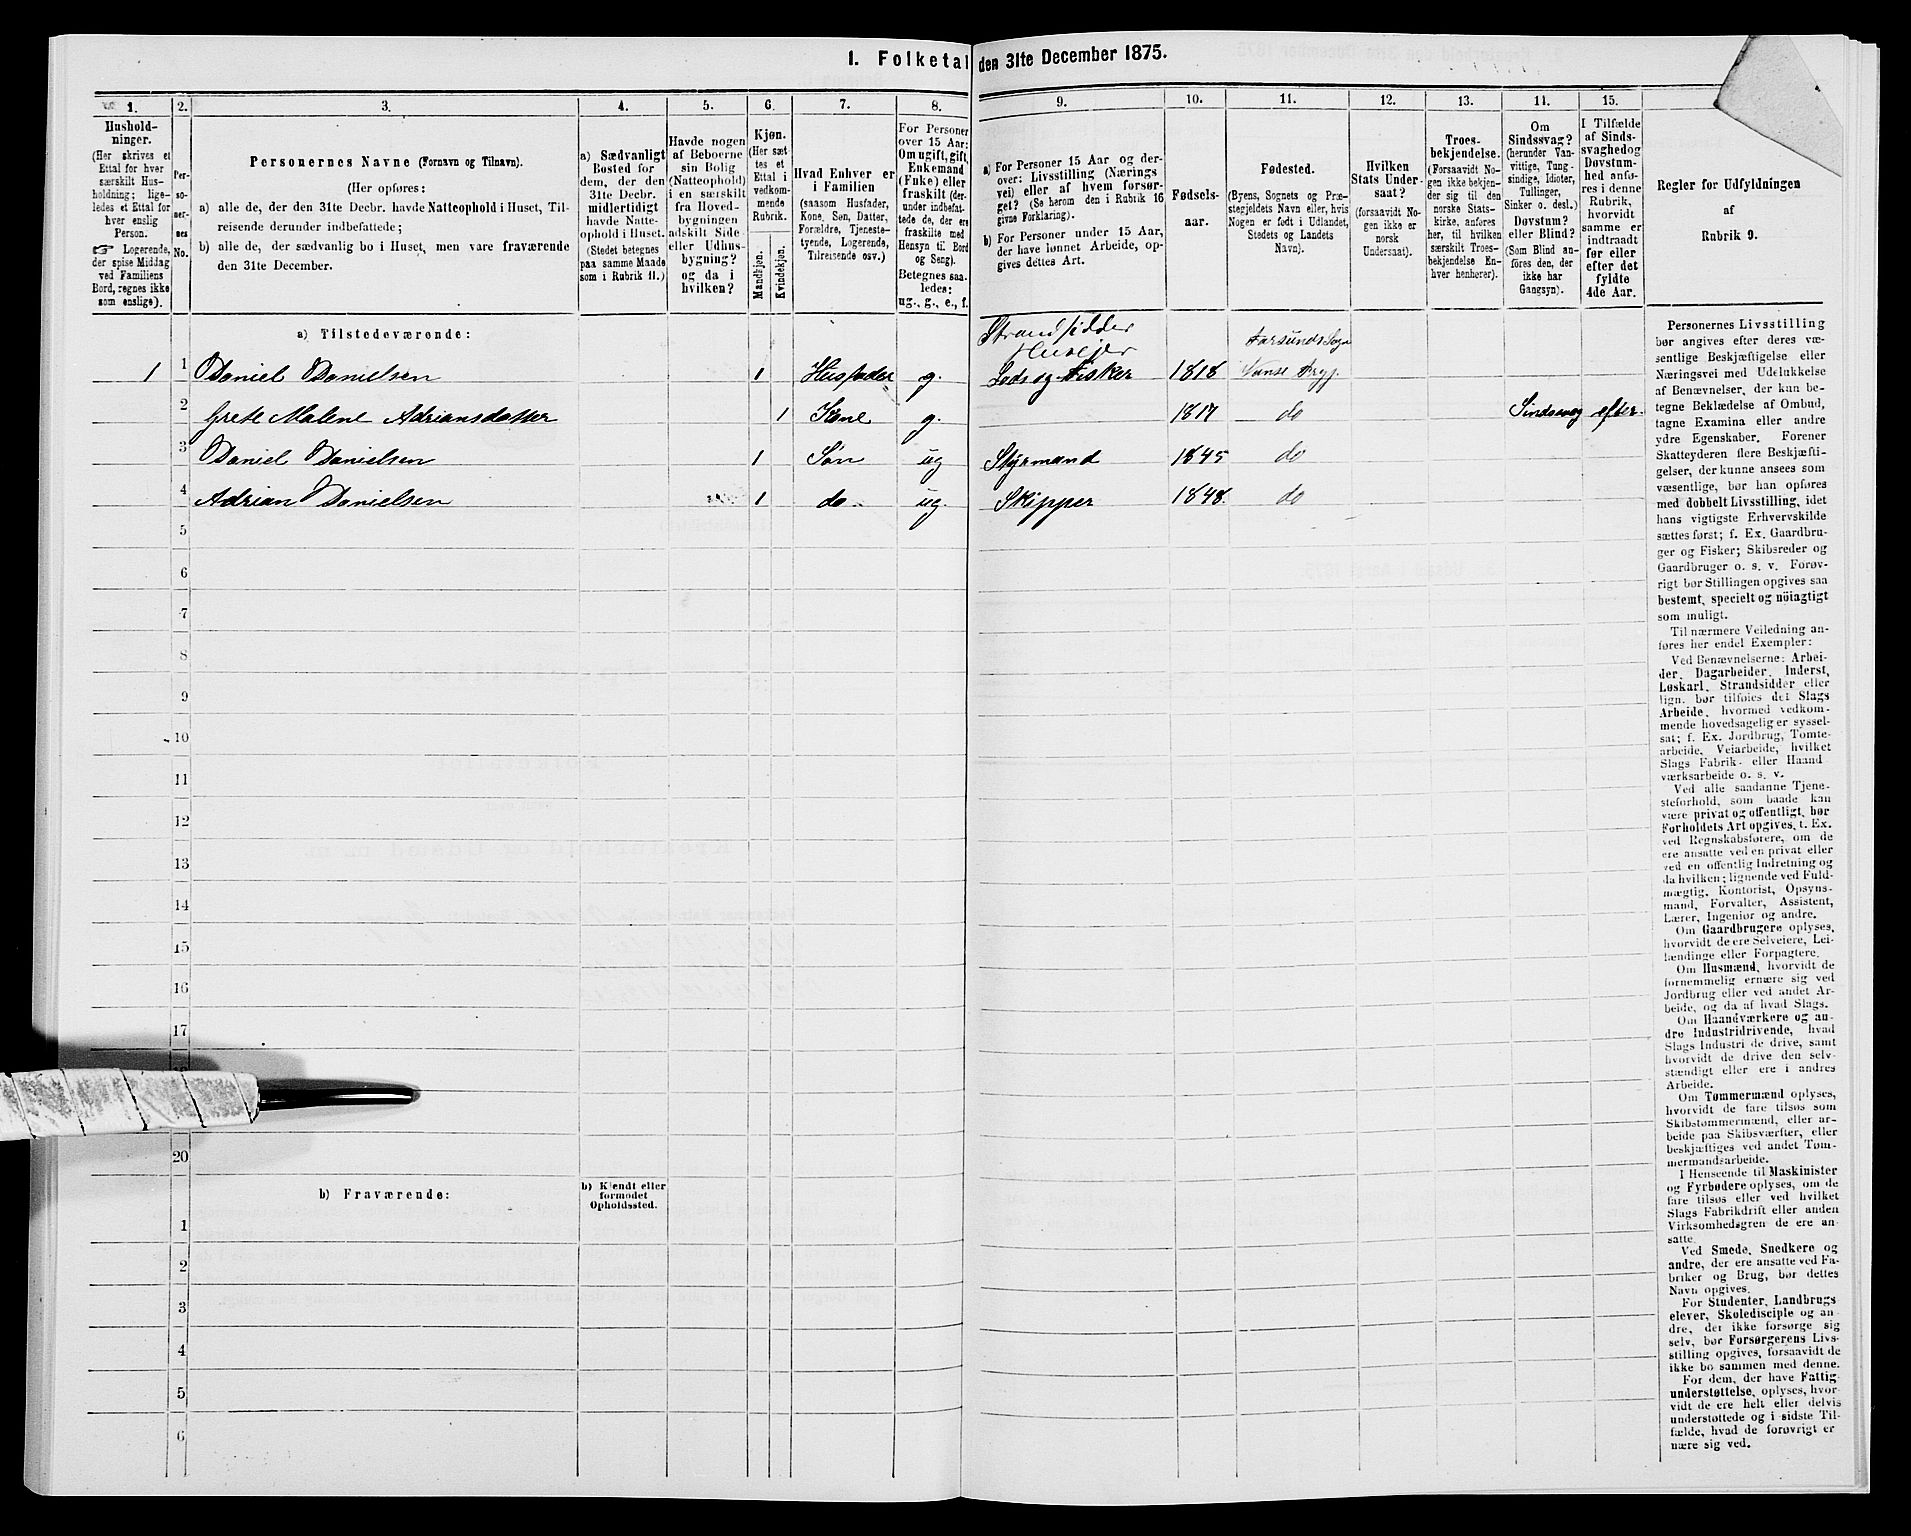 1. Folketal den 31te December 1875.
1. 2. 3. 4. 5. 6. 7. 8. 9. 10. 11. 12. 13. 14. 15.
Hushold-
ninger.
(Her skrives et
Ettal for hver
særskilt Hus-
holdning; lige-
ledes et Ettal for
hver enslig
Person.
☞ Logerende,
der spise Middag
ved Familiens
Bord, regnes ikke
som enslige).
Per-
so-
ner-
nes
No.
Personernes Navne (Fornavn og Tilnavn).
(Her opføres:
a) alle de, der den 31te Decbr. havde Natteophold i Huset, Til-
reisende derunder indbefattede;
b) alle de, der sædvanlig bo i Huset, men vare fraværende
den 31te December.
a) Sædvanligt
Bosted for
dem, der den
31te Decbr.
midlertidigt
havde Natte-
ophold i Huset.
(Stedet betegnes
paa samme Maade
som i Rubrik 11.)
Havde nogen
af Beboerne
sin Bolig
(Natteophold)
i en særskilt
fra Hoved-
bygningen
adskilt Side-
eller Udhus-
bygning?
og da i
hvilken?
Kjøn.
(Her sæt-
tes et
Ettal i
vedkom-
mende
Rubrik.
Mandkjøn.
Kvindekjøn.
Hvad Enhver er
i Familien
(saasom Husfader,
Kone, Søn, Datter,
Forældre, Tjeneste-
tyende, Logerende,
Tilreisende osv.)
For Personer
over 15 Aar:
Om ugift, gift,
Enkemand
(Enke) eller
fraskilt (der-
under indbefat-
tede de, der ere
fraskilte med
Hensyn til Bord
og Seng).
Betegnes saa-
ledes:
ug., g., e., f.
a) For Personer 15 Aar og der-
over: Livsstilling (Nærings
vei) eller af hvem forsør-
get? (Se herom den i Rubrik 16
givne Forklaring).
b) For Personer under 15 Aar,
der have lønnet Arbeide, op-
gives dettes Art.
Fødsels-
aar.
Fødested.
(Byens, Sognets og Præ-
stegjeldets Navn eller, hvis
Nogen er født i Udlandet,
Stedets og Landets
Navn).
Hvilken
Stats Under-
saat?
(forsaavidt No-
gen ikke er
norsk
Undersaat).
Troes-
bekjendelse.
(Forsaavidt No-
gen ikke bekjen-
der sig til den
norske Stats-
kirke, anføres
her, til hvilken
særskilt Troes-
bekjendelse En-
hver henhører).
Om
Sindssvag?
(herunder Van-
vittige, Tung-
sindige, Idioter,
Tullinger,
Sinker o. desl.)
Døvstum?
eller Blind?
(Som Blind an-
føres den, der
ikke har
Gangsyn).
I Tilfælde
af Sinds-
svaghed og
Døvstum-
hed anfø-
res i denne
Rubrik,
hvorvidt
samme er
indtraadt
før eller
efter det
fyldte
4de Aar.
Regler for Udfyldningen
af
Rubrik 9.
a) Tilstedeværende:
Strandsidder
Husejer
Farsunds Sogn
1 1 Daniel Danielsen 1 Husfader g. Lods og Fisker 1818 Vanse
2 Grete Malene Adriansdatter 1 Kone g. 1817 do Sindssvag efter.
3 Daniel Danielsen 1 Søn ug Styrmand 1845 do
4 Adrian Danielsen 1 do ug. Skipper 1848. do
5
6
7
8
9
10
11
12
13
14
15
16
17
20
b) Fraværende:
b) Kjendt eller
formodet
Opholdssted.
1
2
3
4
5
6
Personernes Livsstilling
bør angives efter deres væ-
sentlige Beskjæftigelse eller
Næringsvei med Udelukkelse
af Benævnelser, der kun be-
tegne Beklædelse af Ombud,
tagne Examina eller andre
ydre Egenskaber. Forener
Skatteyderen flere Beskjæfti-
gelser, der kunne ansees som
væsentlige, bør han opføres
med dobbelt Livsstilling, idet
hans vigtigste Erhvervskilde
sættes først; f. Ex. Gaardbru-
ger og Fisker; Skibsreder og
Gaardbruger o. s. v. Forøv-
rigt bør Stillingen opgives saa
bestemt, specielt og nöiagtigt
som muligt.
Til nærmere Veiledning an-
føres her endel Exempler:
Ved Benævnelserne: Arbei-
der, Dagarbeider, Inderst,
Løskarl, Strandsidder eller
lign. bør tilføies det Slags
Arbeide, hvormed vedkom-
mende hovedsagelig er syssel-
sat; f. Ex. Jordbrug, Tomte-
arbeide, Veiarbeide, hvilket
Slags Fabrik- eller Haand
værksarbeide o. s. v.
Ved alle saadanne Tjene-
steforhold, som baade kan
være privat og offentligt, bør
Forholdets Art opgives, t. Ex.
ved Regnskabsførere, om de
ere ansatte ved en privat eller
ved en offentlig Indretning og
da hvilken; lignende ved Fuld-
mægtig, Kontorist, Opsyns-
mand, Forvalter, Assistent,
Lærer, Ingeniør og andre.
Om Gaardbrugere oplyses,
hvorvidt de ere Selveiere, Lei-
lændinge eller Forpagtere.
Om Husmænd, hvorvidt de
fornemmelig ernære sig ved
Jordbrug eller ved andet Ar-
beide, og da af hvad Slags.
Om Haandværkere og an-
dre Industridrivende, hvad
Slags Industri de drive, samt
hvorvidt de drive den selv-
stændigt eller ere i andres
Arbeide.
Om Tømmermænd oplyses,
hvorvidt de fare tilsøs som
Skibstømmermænd, eller ar-
beide paa Skibsværfter, eller
beskjæftiges ved andet Tøm-
mermandsarbeide.
I Henseende til Maskinister
og Fyrbødere oplyses, om de
fare tilsøs eller ved hvilket
Slags Fabrikdrift eller anden
Virksomhedsgren de ere an-
satte.
Ved Smede, Snedkere og
andre, der ere ansatte ved Fa-
briker og Brug, bør dettes
Navn opgives.
For Studenter, Landbrugs
elever, Skoledisciple og an-
dre, der ikke forsørge sig
selv, bør Forsørgerens Livs-
stilling opgives, forsaavidt de
ikke bo sammen med denne.
For dem, der have Fattig-
understøttelse, oplyses, hvor-
vidt de ere helt eller delvis
understøttede og i sidste Til-
fælde, hvad de forøvrigt er
nære sig ved.